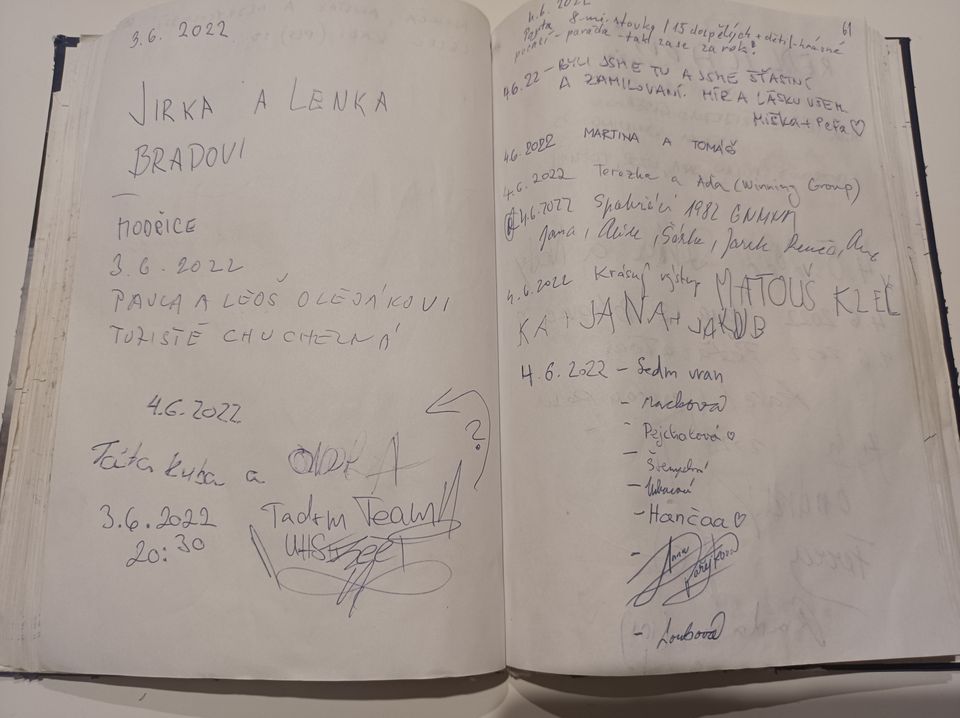 3.6.2022
JIRKA A LENKA
BRADOVI
—
HODĚICE
3.6.2022
PAVLA A LEOŠ OLEJÁKOVI
TURISTÉ CHUCHELNÁ
4.6.2022
Táta Kuba a
3.6.2022 Tadym Team
20:30
?
4.6.2022 61
8 mi. stovky / 15 dospělých + dětí - krásné
počasí - paráda - take zase za rok!
4.6.22 - BYLI JSME TU A JSME ŠŤASTNÍ
A ZAMILOVANÍ. MÍR A LÁSKU VŠEM
MIŠKA + Peťa ♡
4.6.2022 MARTINA A TOMÁŠ
4.6.2022 Terezka a Ada (Winning Group)
4.6.2022 Spolužáci 1982 GNMNM
Jana, Šárka, Jarek
4.6.2022 Krásný výstup MATOUŠ KLEČ
KA + JANA + JAKUB
4.6.2022 - Sedm vran
- Macková
- Pejchotová ♡
- Hančaa ♡
- Jana
- Loubová